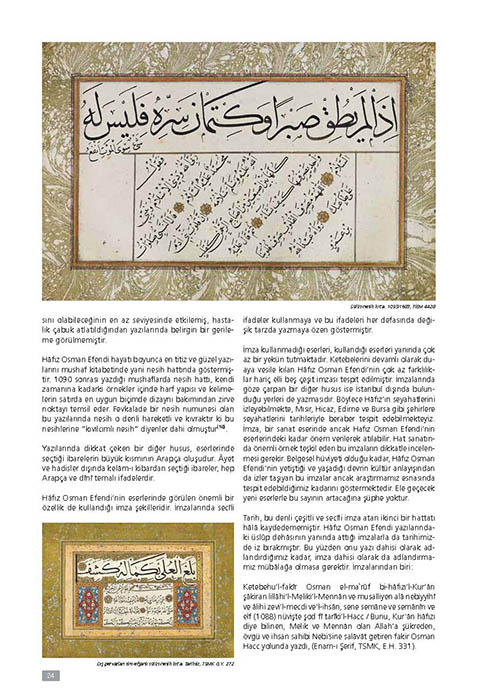 اذا لم يطق صبرا وكتمان سره فليس له
سوى الموت ينفع
Sülüs-nesih kıt'a.
sını olabileceğinin en az seviyesinde etkilemiş, hasta-
lık çabuk atlatıldığından yazılarında belirgin bir gerile-
me görülmemiştir.
Hâfız Osman Efendi hayatı boyunca en titiz ve güzel yazı-
larını mushaf kitabetinde yani nesih hattında göstermiş-
tir. 1090 sonrası yazdığı mushaflarda nesih hattı, kendi
zamanına kadarki örnekler içinde harf yapısı ve kelime-
lerin satırda en uygun biçimde dizaynı bakımından zirve
noktayı temsil eder. Fevkalade bir nesih numunesi olan
bu yazılarında nesih o denli hareketli ve kıvraktır ki bu
nesihlerine "kıvılcımlı nesih" diyenler dahi olmuştur
Yazılarında dikkat çeken bir diğer husus, eserlerinde
seçtiği ibarelerin büyük kısmının Arapça oluşudur. Âyet
ve hadisler dışında kelâm-ı kibardan seçtiği ibareler, hep
Arapça ve dînî temalı ifadelerdir.
Hâfız Osman Efendi'nin eserlerinde görülen önemli bir
özellik de kullandığı imza şekilleridir. İmzalarında secîli
بلغ العلى بكماله كشف
Dış pervazları zerefşanlı sülüs-nesih kıt'a. Tarihsiz, TSMK, G.Y. 272
ifadeler kullanmaya ve bu ifadeleri her defasında deği-
şik tarzda yazmaya özen göstermiştir.
İmza kullanmadığı eserleri, kullandığı eserleri yanında çok
az bir yekûn tutmaktadır. Ketebelerini devamlı olarak du-
aya vesile kılan Hâfız Osman Efendi'nin çok az farklılık-
lar hariç elli beş çeşit imzası tespit edilmiştir. İmzalarında
göze çarpan bir diğer husus ise İstanbul dışında bulun-
duğu yerleri de yazmasıdır. Böylece Hâfız'ın seyahatlerini
izleyebilmekte, Mısır, Hicaz, Edirne ve Bursa gibi şehirlere
seyahatlerini tarihleriyle beraber tespit edebilmekteyiz.
İmza, bir sanat eserinde ancak Hafız Osman Efendi'nin
eserlerindeki kadar önem verilerek atılabilir. Hat sanatın-
da önemli örnek teşkil eden bu imzaların dikkatle incelen-
mesi gerekir. Belgesel hüviyeti olduğu kadar, Hâfız Osman
Efendi'nin yetiştiği ve yaşadığı devrin kültür anlayışından
da izler taşıyan bu imzalar ancak araştırmamız esnasında
tespit edebildiğimiz kadarını göstermektedir. Ele geçecek
yeni eserlerle bu sayının artacağına şüphe yoktur.
Tarih, bu denli çeşitli ve secîli imza atan ikinci bir hattatı
hâlâ kaydedememiştir. Hâfız Osman Efendi yazılarında-
ki üslûp dehâsının yanında attığı imzalarla da tarihimiz-
de iz bırakmıştır. Bu yüzden onu yazı dahisi olarak ad-
landırdığımız kadar, imza dahisi olarak da adlandırma-
mız mübâlağa olmasa gerektir. İmzalarından biri:
Ketebehu'l-fakîr Osman el-ma'rûf bi-hâfizı'l-Kur'ân
şâkiran lillâhi'l-Meliki'l-Mennân ve musalliyen alâ nebiyyihî
ve âlihî zevi'l-mecdi ve'l-ihsân, sene semâne ve semânîn ve
elf (1088) nüvişte şod fî tarîki'l-Hacc / Bunu, Kur'ân hâfızı
diye bilinen, Melik ve Mennân olan Allah'a şükreden,
övgü ve ihsan sahibi Nebi'sine salâvât getiren fakir Osman
Hacc yolunda yazdı, (Enam-ı Şerif, TSMK, E.H. 331).
24